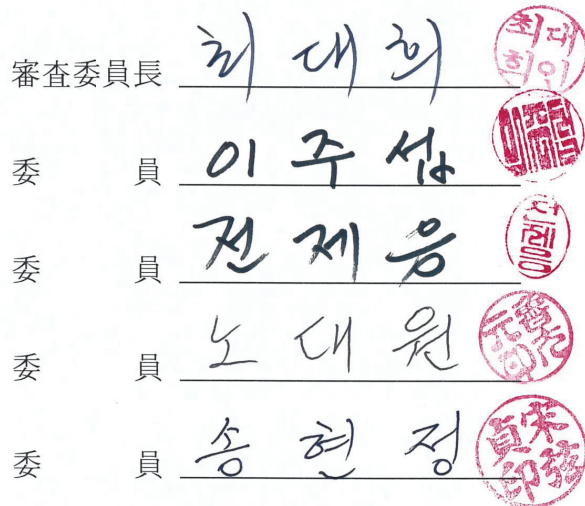 審査委員長 최대희
委員 이주섭
委員 전제응
委員 노대원
委員 송현정